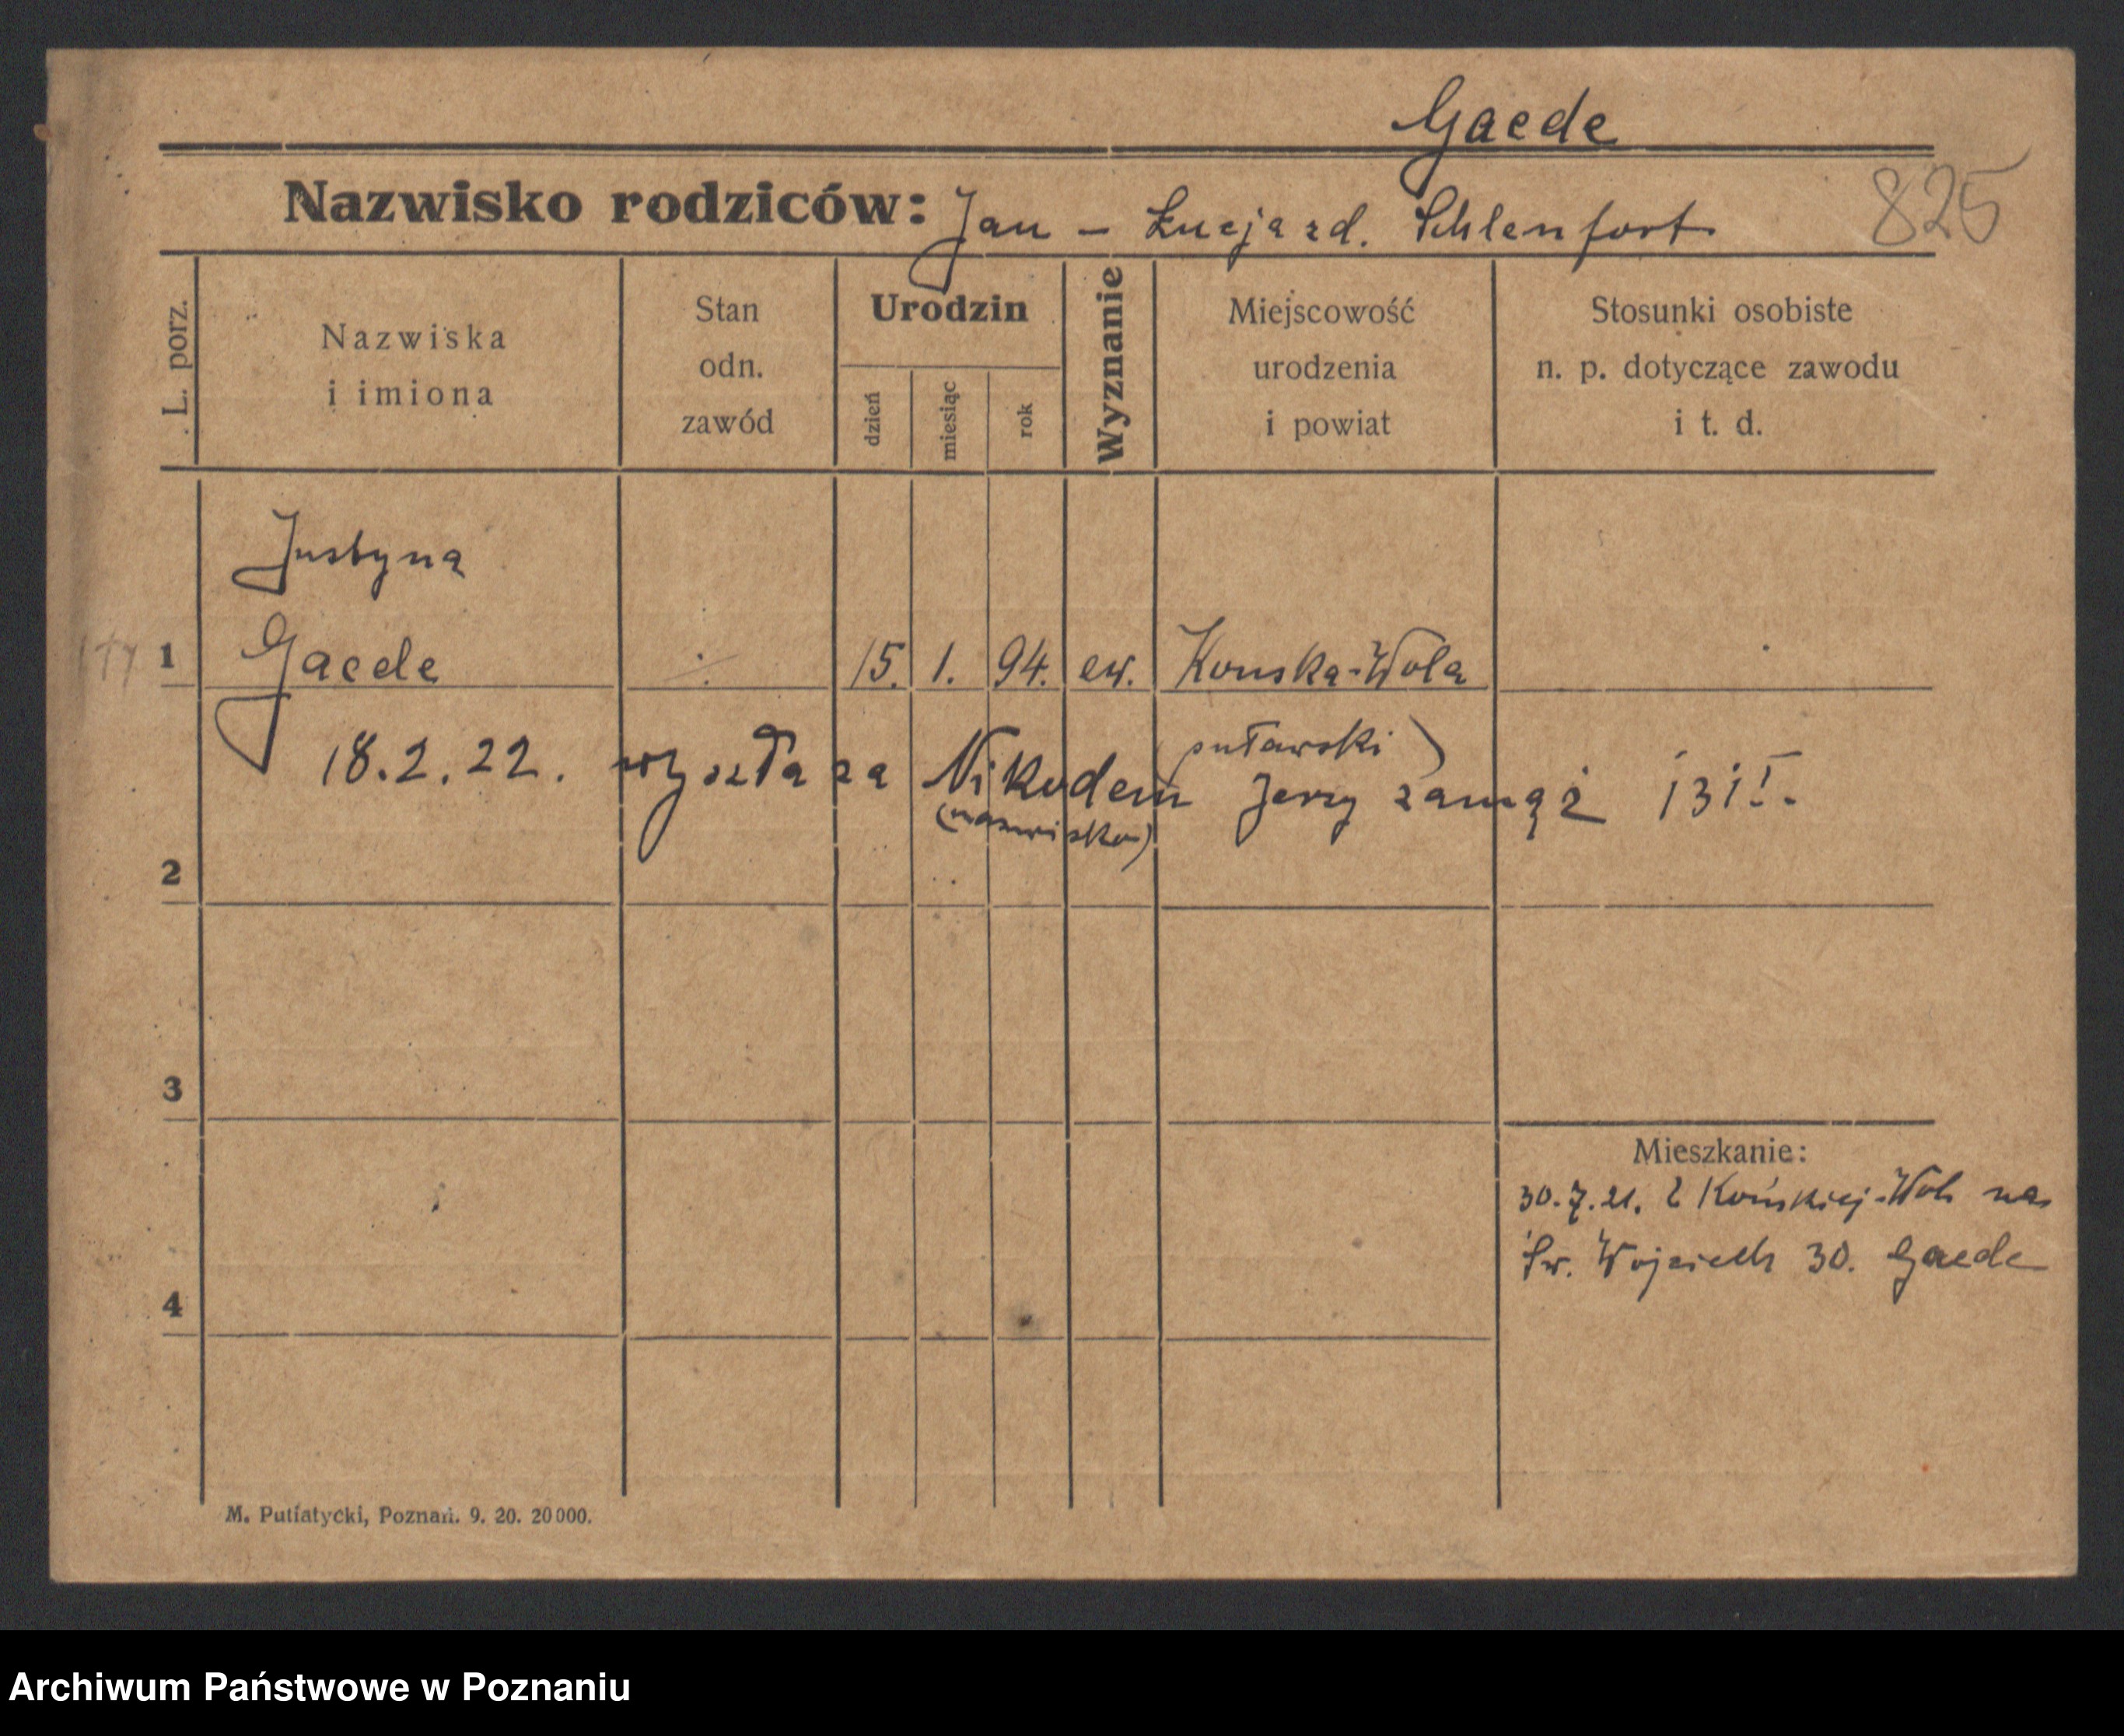 Gaede
Nazwisko rodziców: Jan - Łucja zd. Schlenfort 825
L. porz.
Nazwiska
i imiona
Stan
odn.
zawód
Urodzin
dzień
miesiąc
rok
Wyznanie
Miejscowość
urodzenia
i powiat
Stosunki osobiste
n. p. dotyczące zawodu
i t. d.
Justyna
1 Gaede ·/. 15. 1. 94. ew. Konska-Wola
puławski)
18.2.22. wyszła za Nikodem Jerzy zamąż
(nazwisko)
2
3
Mieszkanie:
30.7.21. z Końskiej-Woli na
Św. Wojciech 30. Gaede
4
M. Putiatycki, Poznań. 9. 20. 20000.
Archiwum Państwowe w Poznaniu